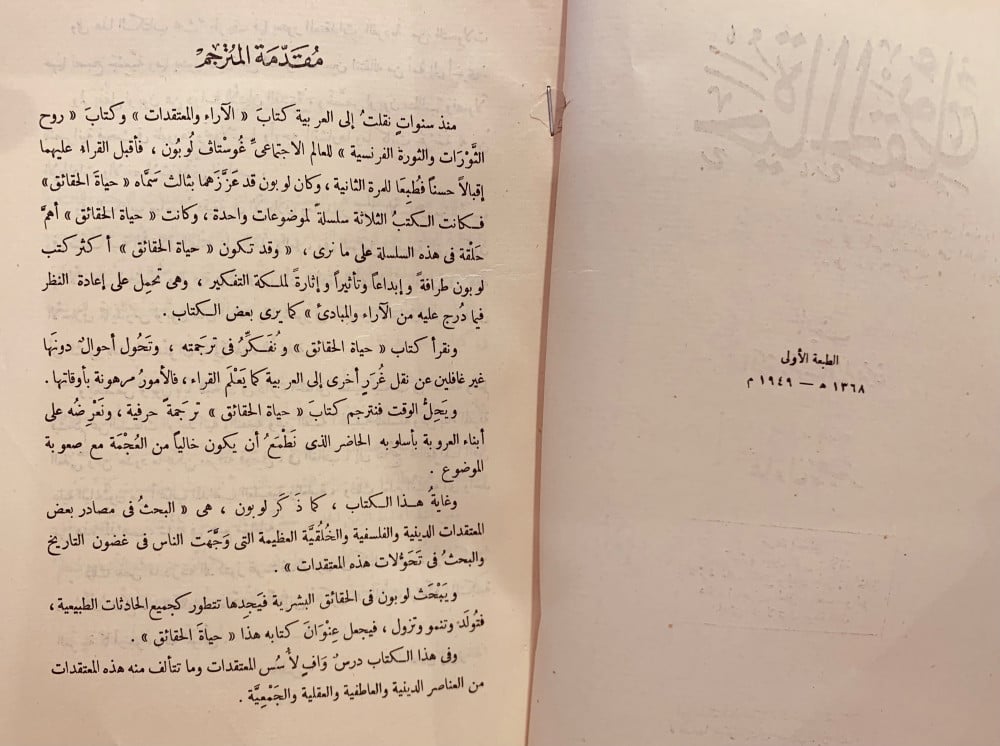 الطبعة الأولى
١٣٦٨ هـ — ١٩٤٩ م
مُقَدّمَة المُتَرجم
منذ سنواتٍ نقلتُ إلى العربية كتابَ « الآراء والمعتقدات » وكتابَ « روح
الثَّوْرَات والثورة الفرنسية » للعالم الاجتماعيِّ غُوسْتاف لُوبُون ، فأقبل القراء عليهما
إقبالاً حسناً فطُبِعَا للمرة الثانية ، وكان لوبون قد عَزَّزَهما بثالث سَمَّاه « حياةَ الحقائق »
فكانت الكتبُ الثلاثة سلسلةً لموضوعات واحدة ، وكانت « حياة الحقائق » أهمَّ
حَلْقة فى هذه السلسلة على ما نرى ، « وقد تكون « حياة الحقائق » أكثر كتب
لوبون طرافةً وإبداعاً وتأثيراً وإثارةً لملكة التفكير ، وهى تحمِل على إعادة النظر
فيما دُرج عليه من الآراء والمبادئ » كما يرى بعض الكتاب .
ونقرأ كتاب « حياة الحقائق » ونُفَكِّرُ فى ترجمته ، وتَحُول أحوالٌ دونَها
غير غافلين عن نقل غُرَرٍ أخرى إلى العربية كما يَعْلَم القراء ، فالأمورُ مرهونة بأوقاتها .
ويَحِلُّ الوقت فنترجم كتابَ « حياة الحقائق » ترجمةً حرفية ، ونَعْرِضُه على
أبناء العروبة بأسلوبه الحاضر الذى نَطْمَعُ أن يكون خالياً من العُجْمَة مع صعوبة
الموضوع .
وغايةُ هذا الكتاب ، كما ذَكَر لوبون ، هى « البحثُ فى مصادر بعض
المعتقدات الدينية والفلسفية والخُلُقيَّة العظيمة التى وَجَّهَت الناس فى غضون التاريخ
والبحثُ فى تَحَوُّلات هذه المعتقدات » .
ويَبْحَث لوبون فى الحقائق البشرية فيَجِدها تتطور كجميع الحادثات الطبيعية ،
فتُولَد وتنمو وتزول ، فيجعل عِنْوَانَ كتابه هذا « حياةَ الحقائق » .
وفى هذا الكتاب درسٌ وَافٍ لأُسُس المعتقدات وما تتألف منه هذه المعتقدات
من العناصر الدينية والعاطفية والعقلية والجَمْعِيَّة .